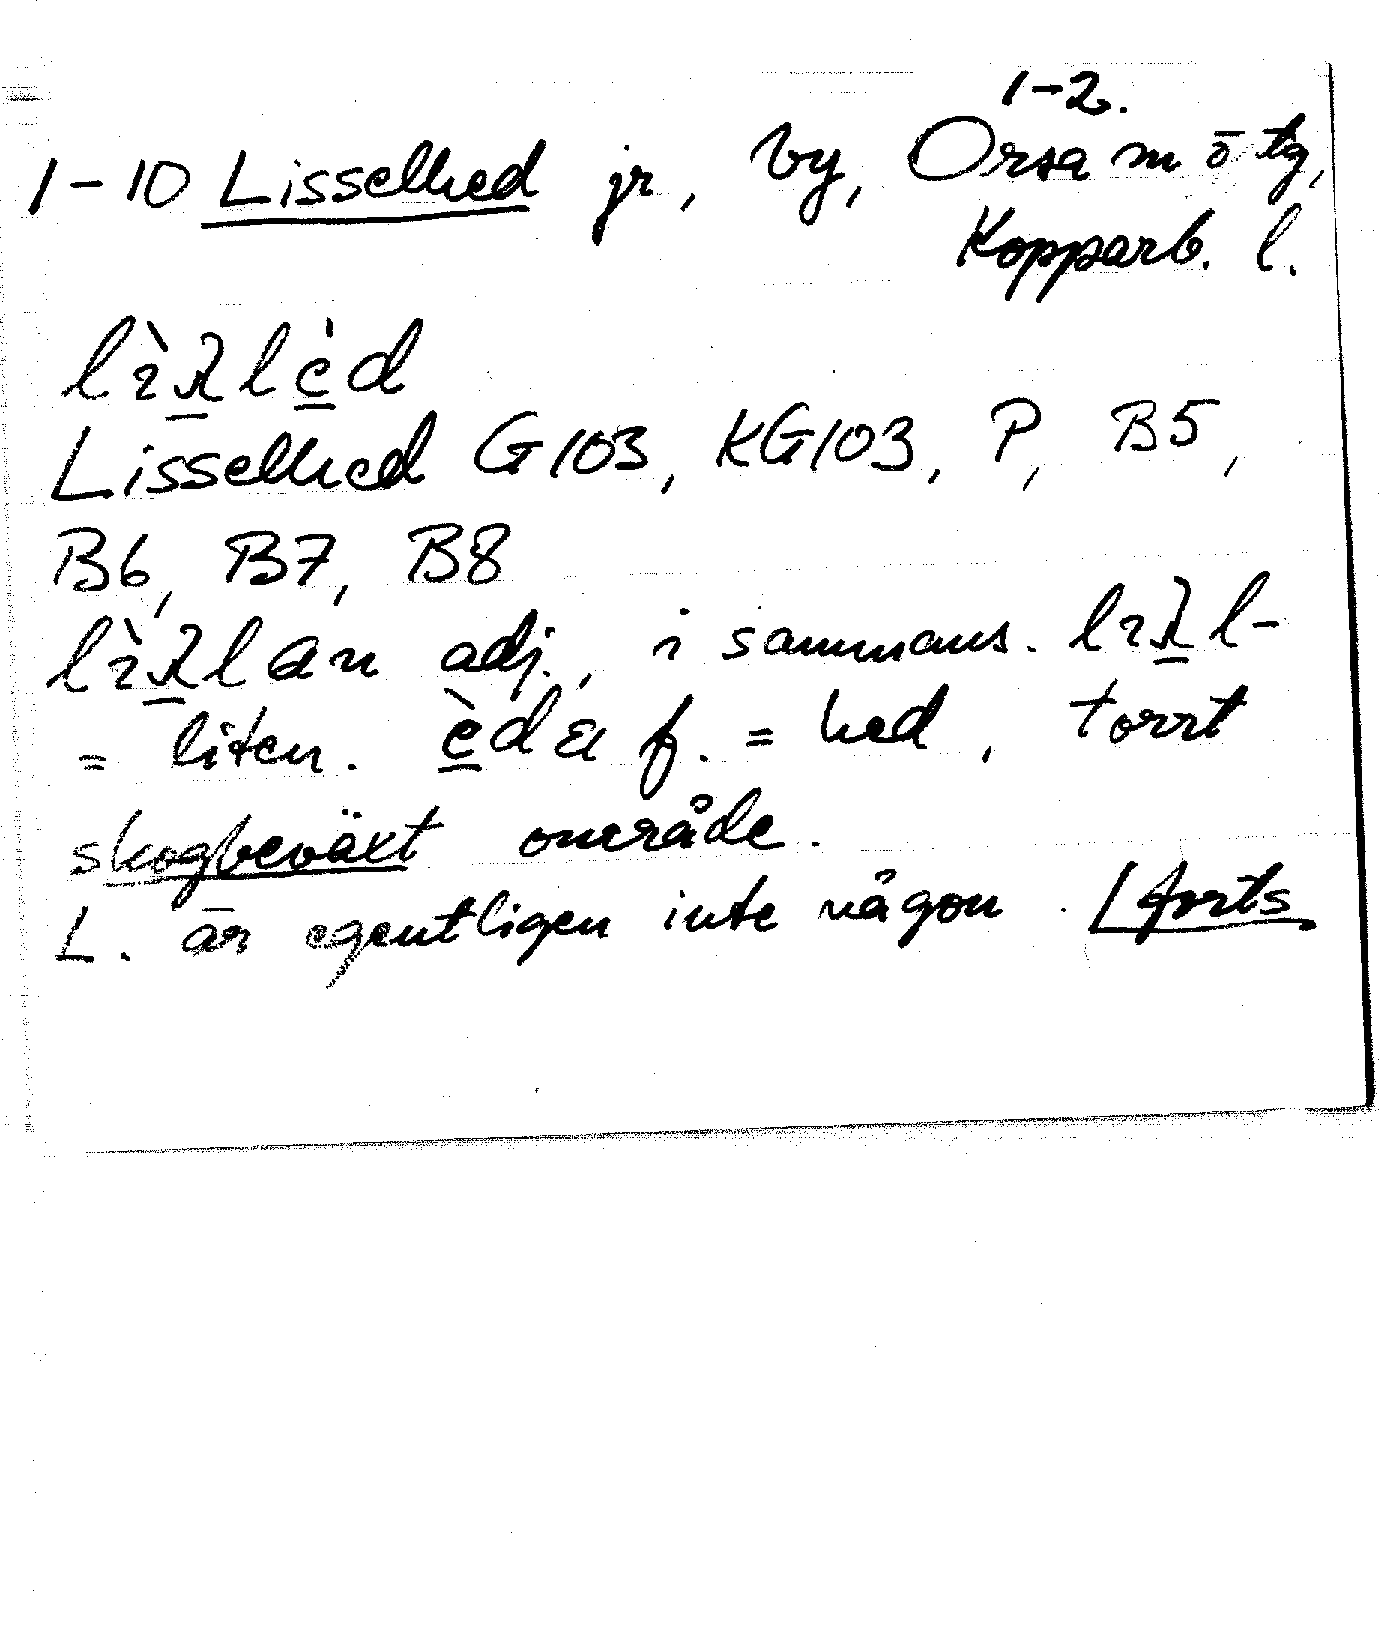 1-2.
1-10 Lisselhed jr, by, Orsa m o tg,
Kopparb. l.
Lisselhed G103, KG103, P, B5,
B6, B7, B8
adj., i sammans.
= liten. f. = hed, torrt
skogbeväxt område.
L. är egentligen inte någon. /forts